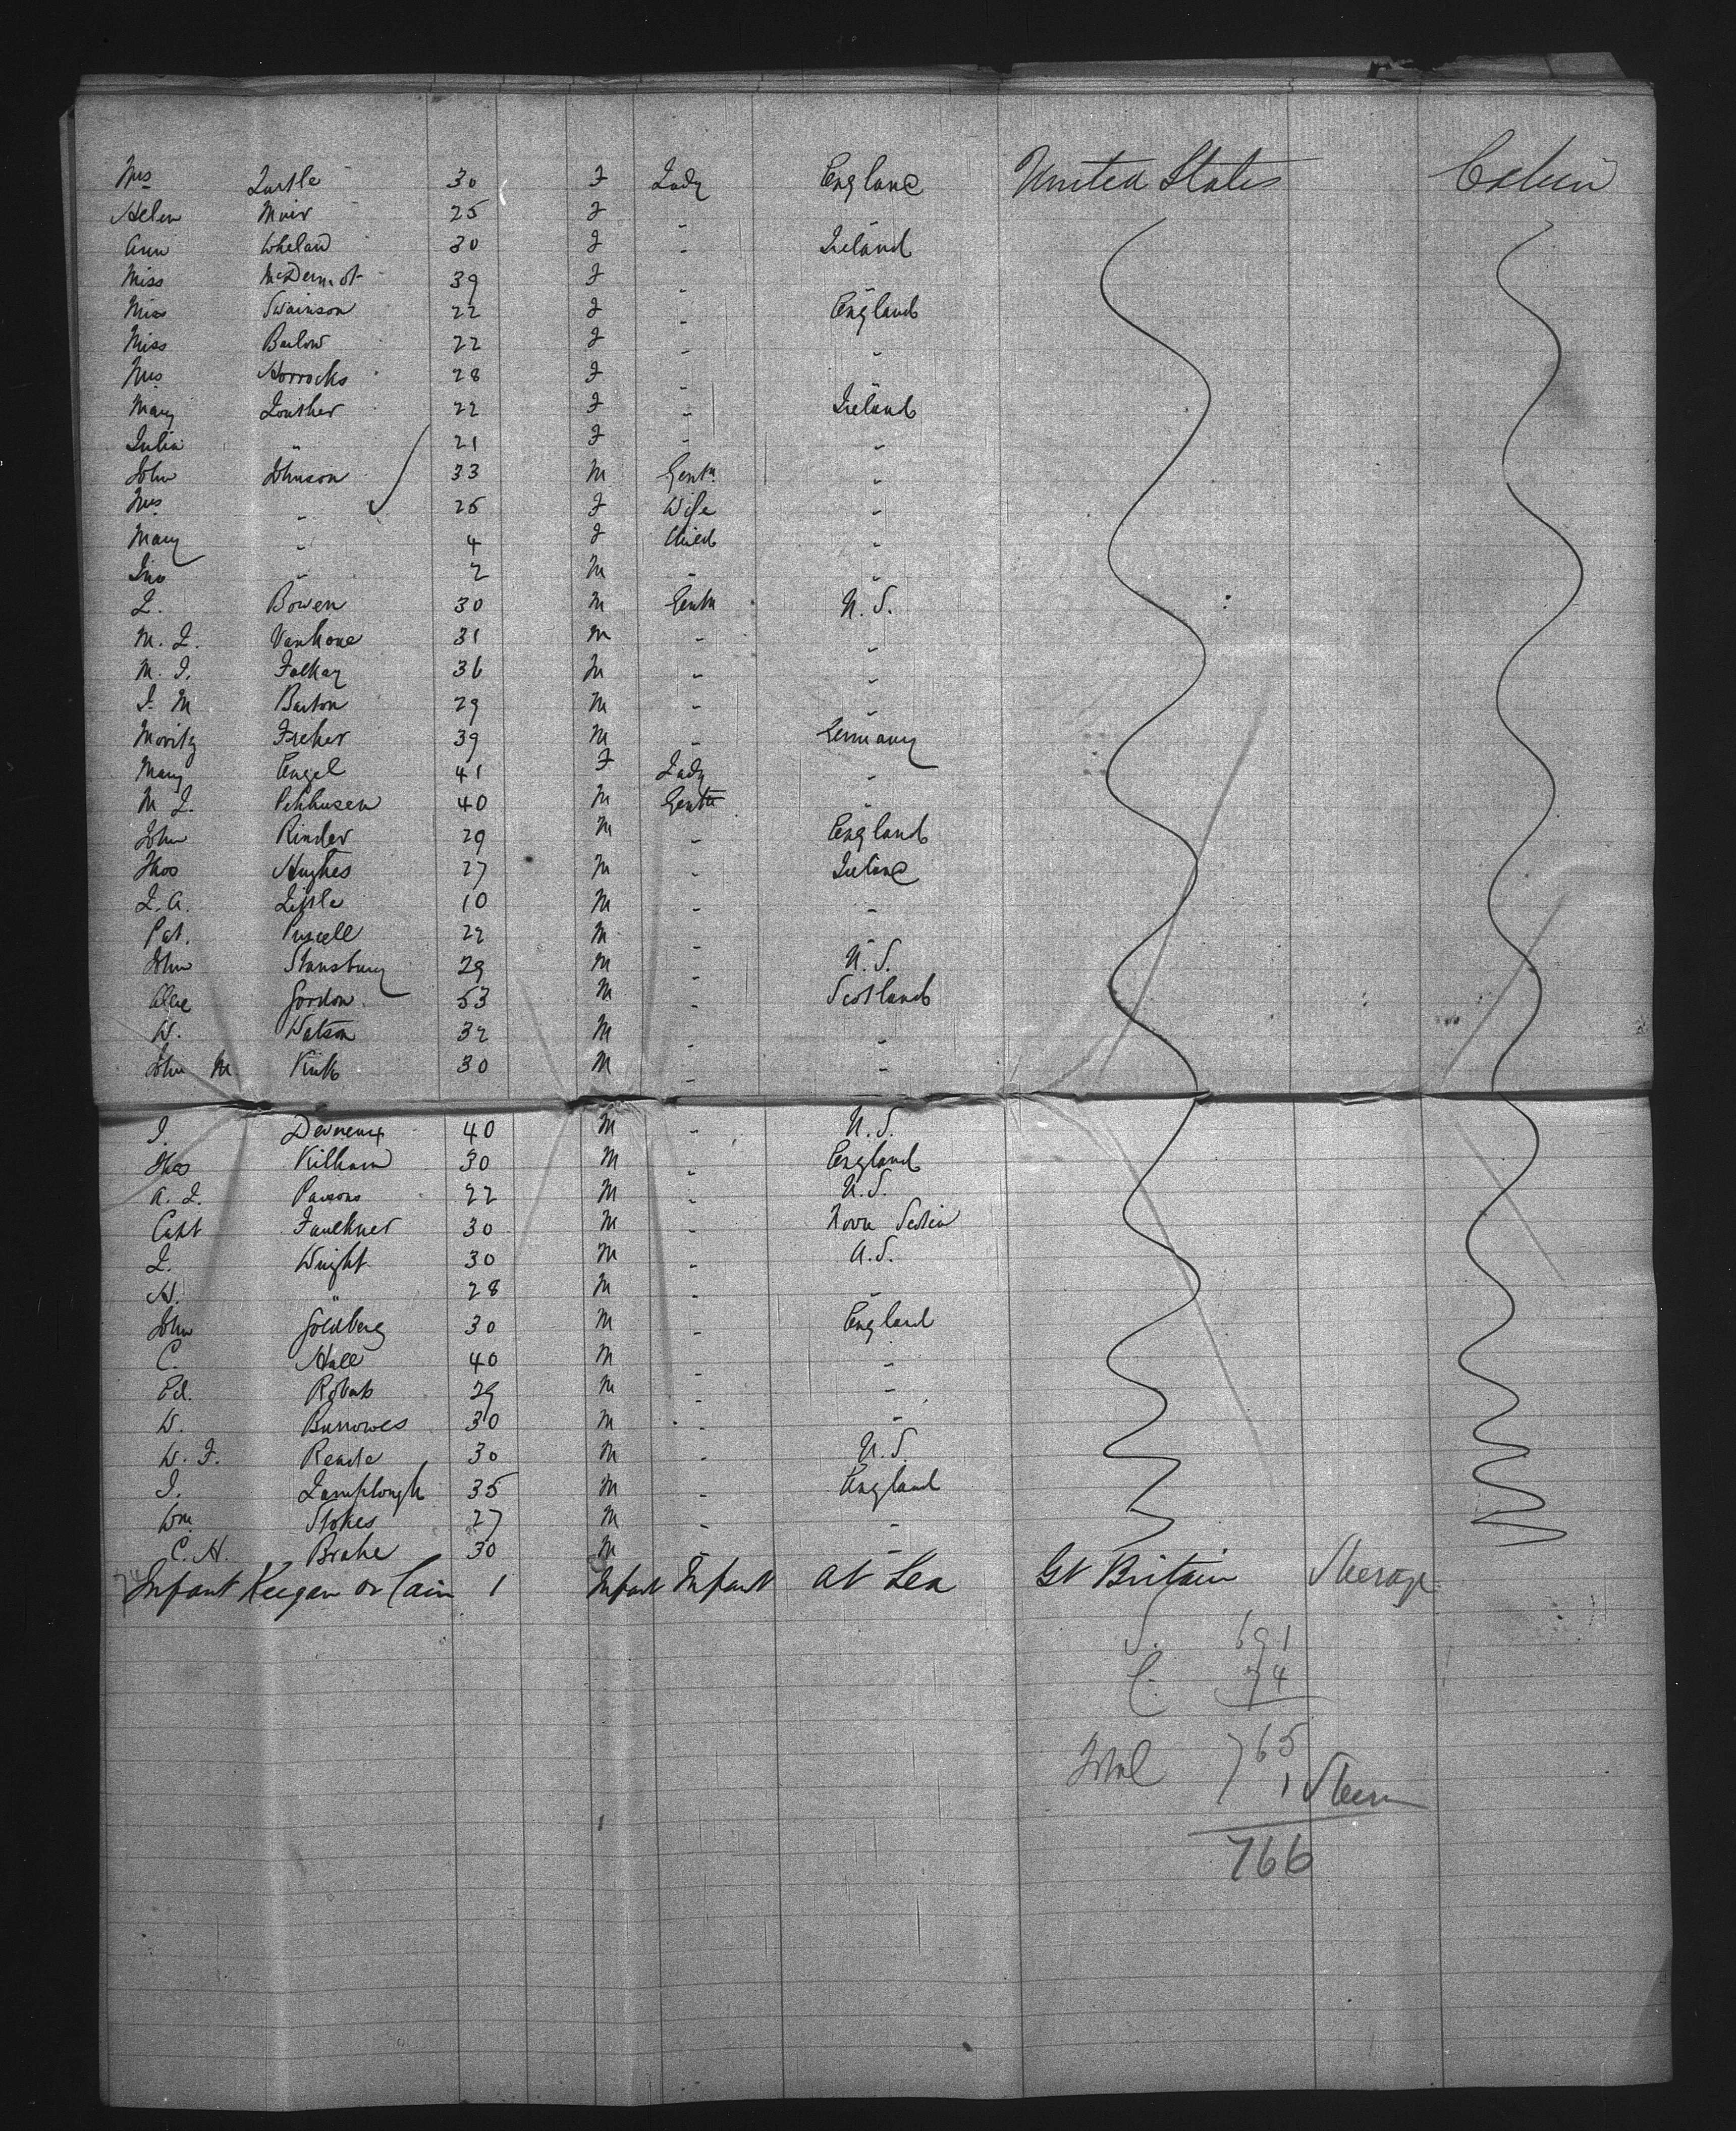 Mrs Lustle 30 F Lady England United States Cabin
Helen Muir 25 F " "
Ann Whelan 30 F " Ireland
Miss McDermot 39 F " "
Miss Swainson 22 F " England
Miss Barlow 22 F " "
Mrs Horrocks 28 F " "
Mary Louther 22 F " Ireland
Julia " 21 F " "
John Johnson 33 M Gentn "
Mrs " 25 F Wife "
Mary " 4 F Child "
Jno " 2 M " "
L. Bowen 30 M Gentn U.S.
M. L. Vanhone 31 M " "
M. J. Folkay 36 M " "
J. M Barton 29 M " "
Moritz Freher 39 M " Germany
Mary Engel 41 F Lady "
M L. Pehhusen 40 M Gentn "
John Rinder 29 M " England
Thos Hughes 27 M " Ireland
L. A. Lisle 10 M " "
Pat. Puscell 22 M "
John Stansbury 29 M " U.S.
Alex Gordon 53 M " Scotland
W. Watson 32 M " "
John M Kirk 30 M " "
J. Devereux 40 M " U.S.
Thos Killham 30 M " England
A. L. Parsons 22 M " U.S.
Capt Faulkner 30 M " Nova Scotia
L. Wright 30 M " U.S.
H. " 28 M " "
John Goldberg 30 M " England
C. Hall 40 M "
Ed. Robarts 29 M " "
W. Burrowes 30 M " "
W. F. Reade 30 M " U.S.
J. Lamplough 35 M " England
Wm. Stokes 27 M " "
C. H. Brahe 30 M " "
Infant Keegan or Cain 1 Infant Infant At Sea Gt Britain Steerage
S. 691
C. 74
Total 765
1 Steer
766